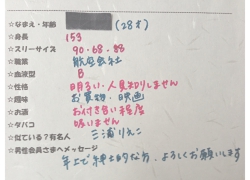 ☆なまえ・年齢 (28才)
☆身長 153
☆スリーサイズ 90・68・88
☆職業 飲食会社
☆血液型 B
☆性格 明るい・人見知りしません
☆趣味 お買物・映画
☆お酒 お付き合い程度
☆タバコ 吸いません
☆似ている?有名人 三浦りえこ
☆男性会員さまへメッセージ
年上で紳士的な方、よろしくお願いします